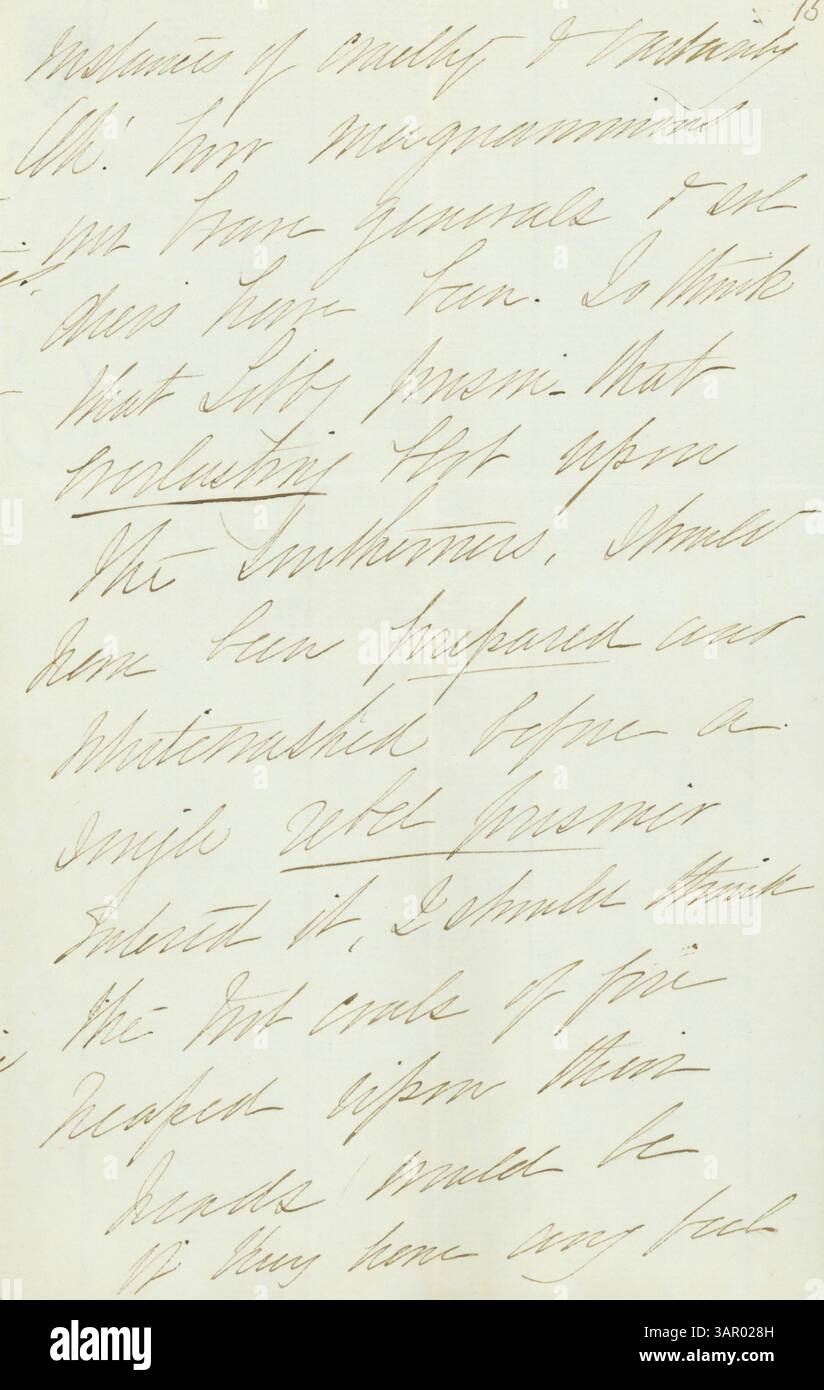 15
instances of cruelty & barbarity
Ah! how magnanimous
our brave generals & sol
diers have been. To think
that Libby prison - that
everlasting blot upon
the Southerners, should
have been prepared and
whitewashed before a
single rebel prisoner
entered it, I should think
the hot coals of fire
heaped upon their
heads would be
if they have any feel
alamy
Image ID: 3AR028H
www.alamy.com